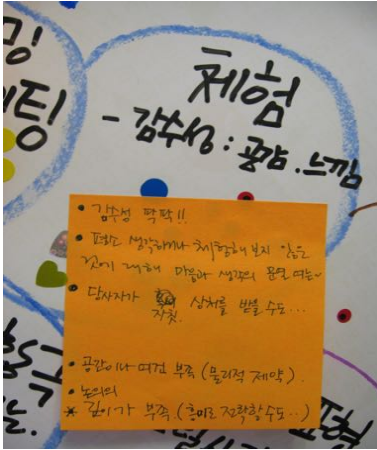 밍
이팅
체험
- 감수성 : 공감. 느낌
• 감수성 팍팍!!
• 평소 생각하거나 체험해 보지 않은
것에 대해 마음과 생각의 문열 여는~
• 당사자가 자칫 상처를 받을 수도...
• 공간이나 여건 부족 (물리적 제약).
• 논의의
* 깊이가 부족 (흥미로 전락할수도..)